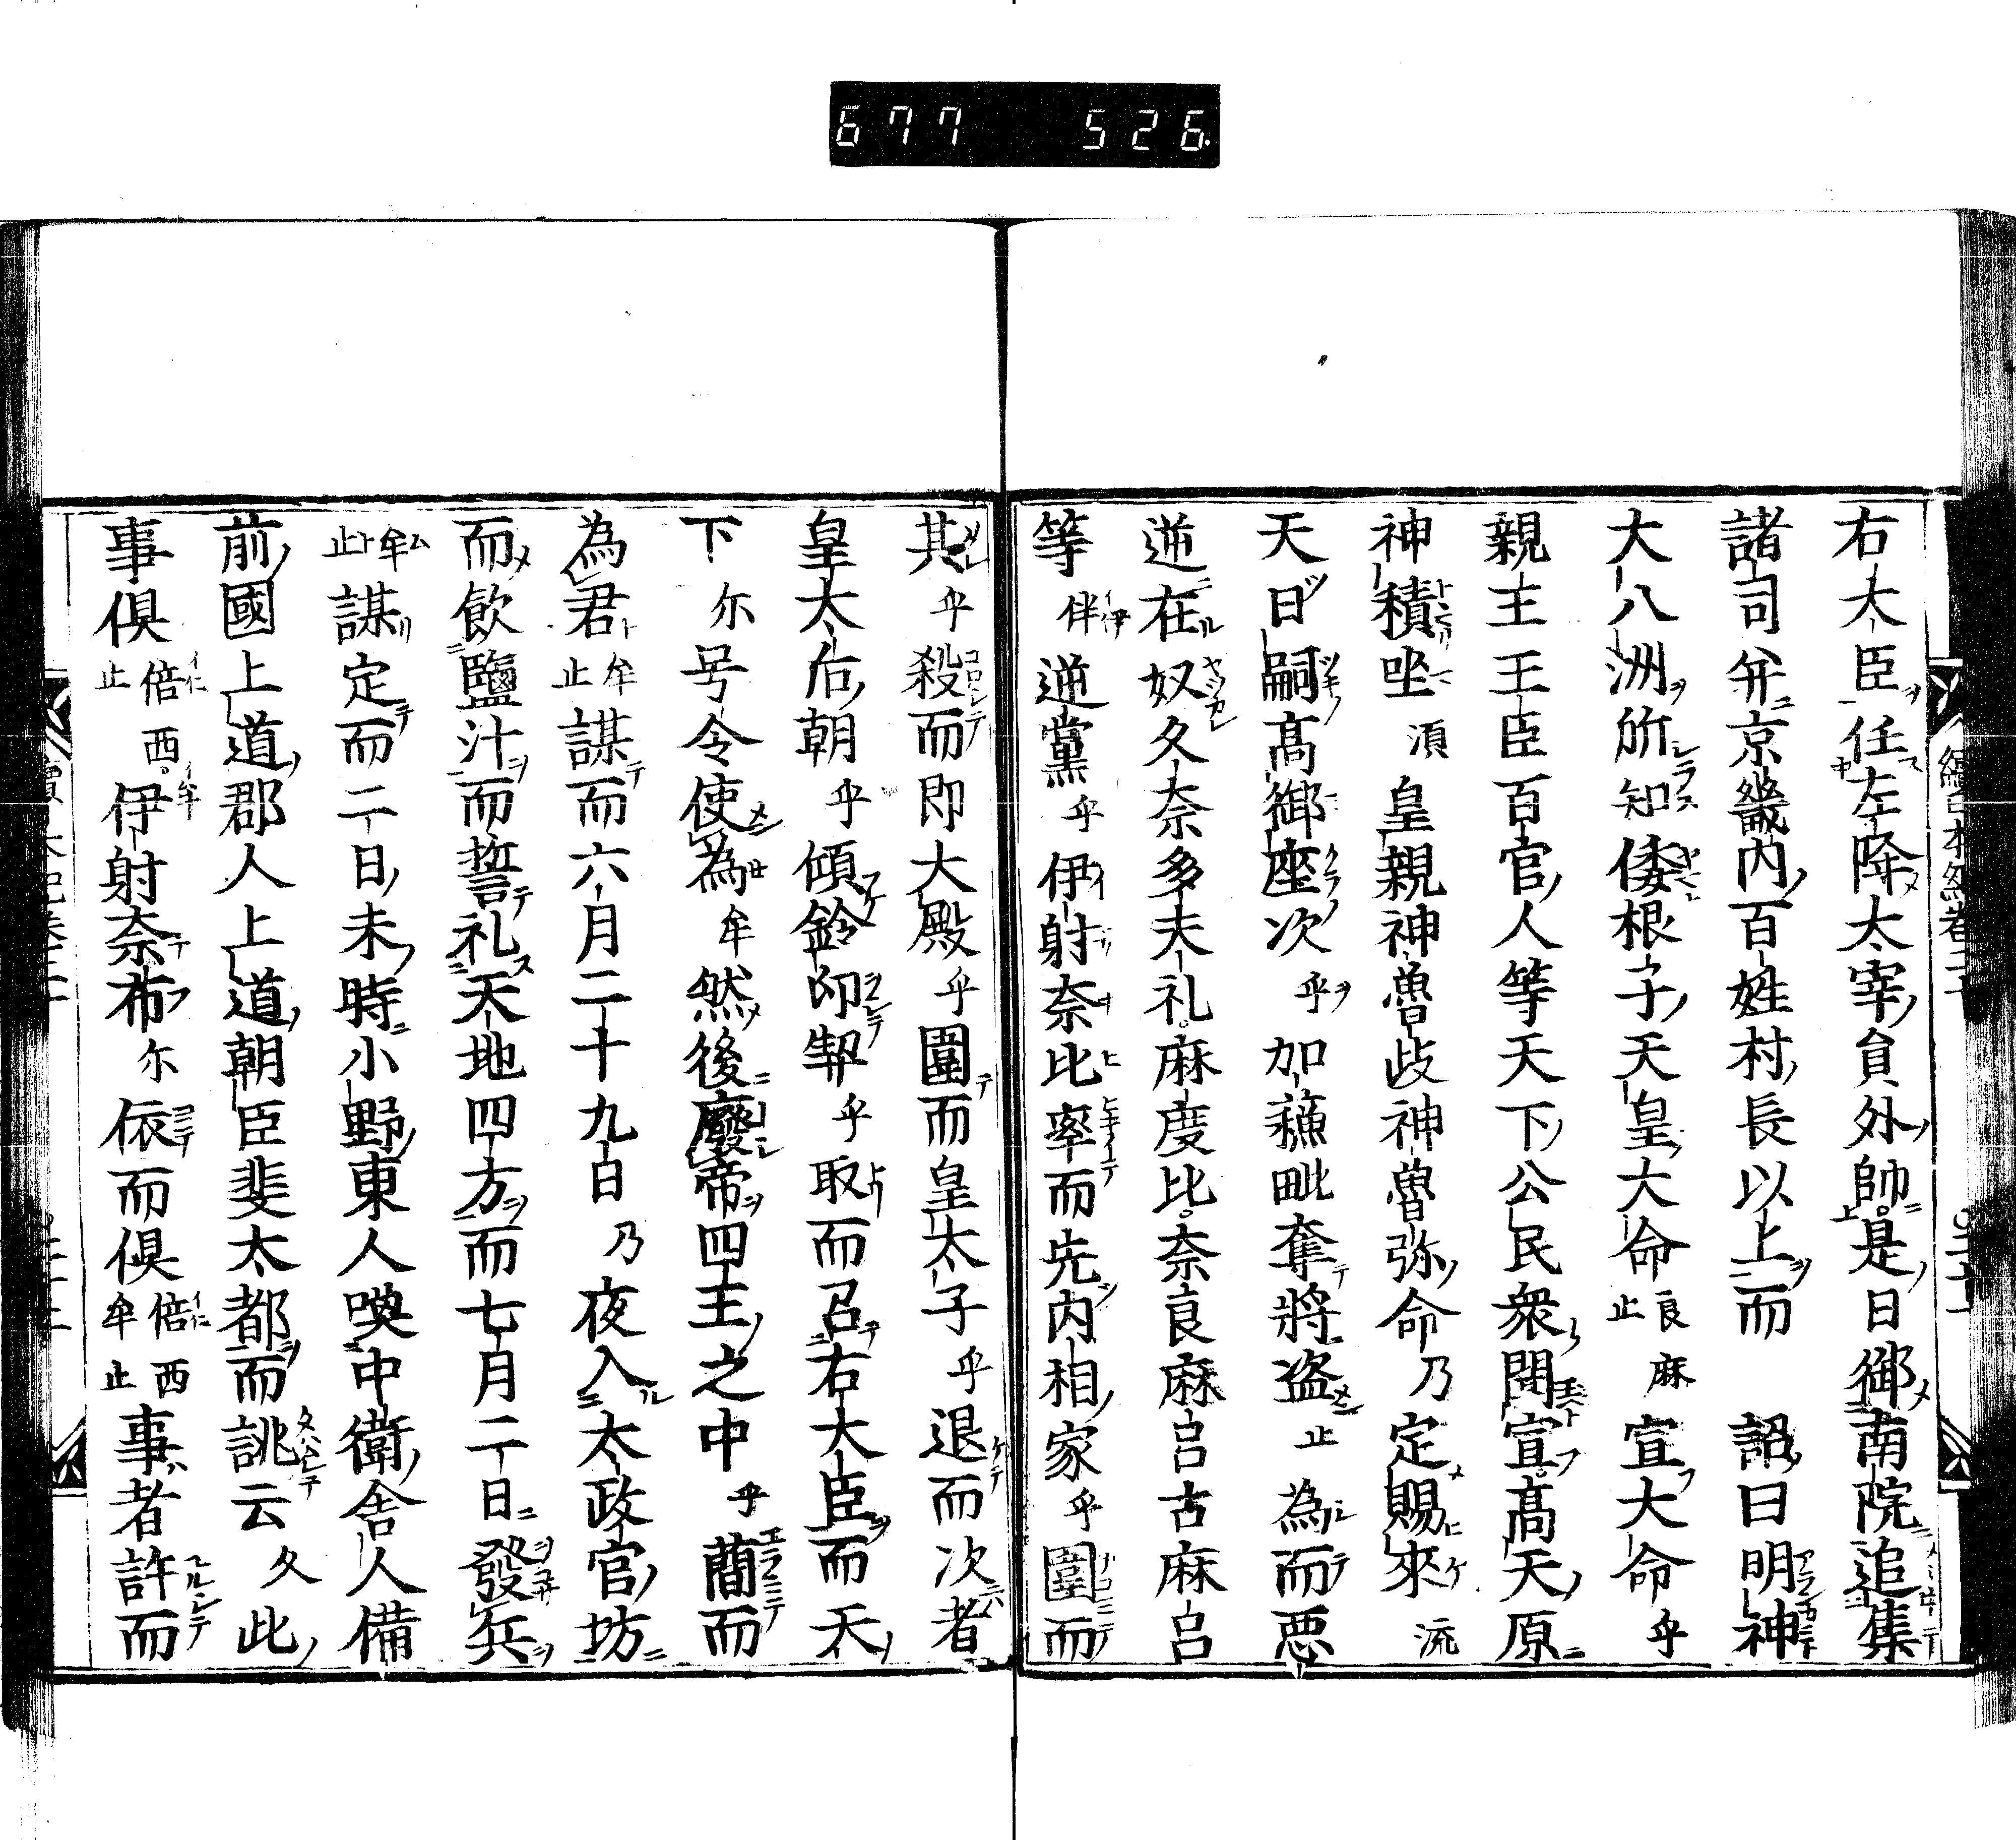 677 526
右大臣任左降太宰員外帥是日御南院追集
諸司并京畿内百姓村長以上而 詔曰明神
大八洲所知倭根子天皇大命良麻止宣大命乎
親王王臣百官人等天下公民衆聞宣高天原
神積坐須皇親神魯歧神魯弥命乃定賜來流
天日嗣高御座次乎加蘓毗奪將盗止為而悪
逆在奴久奈多夫礼麻度比奈良麻呂古麻呂
等伴逆黨乎伊射奈比率而先内相家乎圍而
其乎殺而即大殿乎圍而皇太子乎退而次者
皇太后朝乎傾鈴印契乎取而召右大臣而天
下尓号令使為牟然後廢帝四王之中乎蕳而
為君止牟謀而六月二十九日乃夜入太政官坊
而飲鹽汁而誓礼天地四方而七月二日發兵
止牟謀定而二日未時小野東人喚中衛舎人備
前國上道郡人上道朝臣斐太都而誂云久此
事俱止倍西伊射奈布尓依而俱倍西牟止事者許而